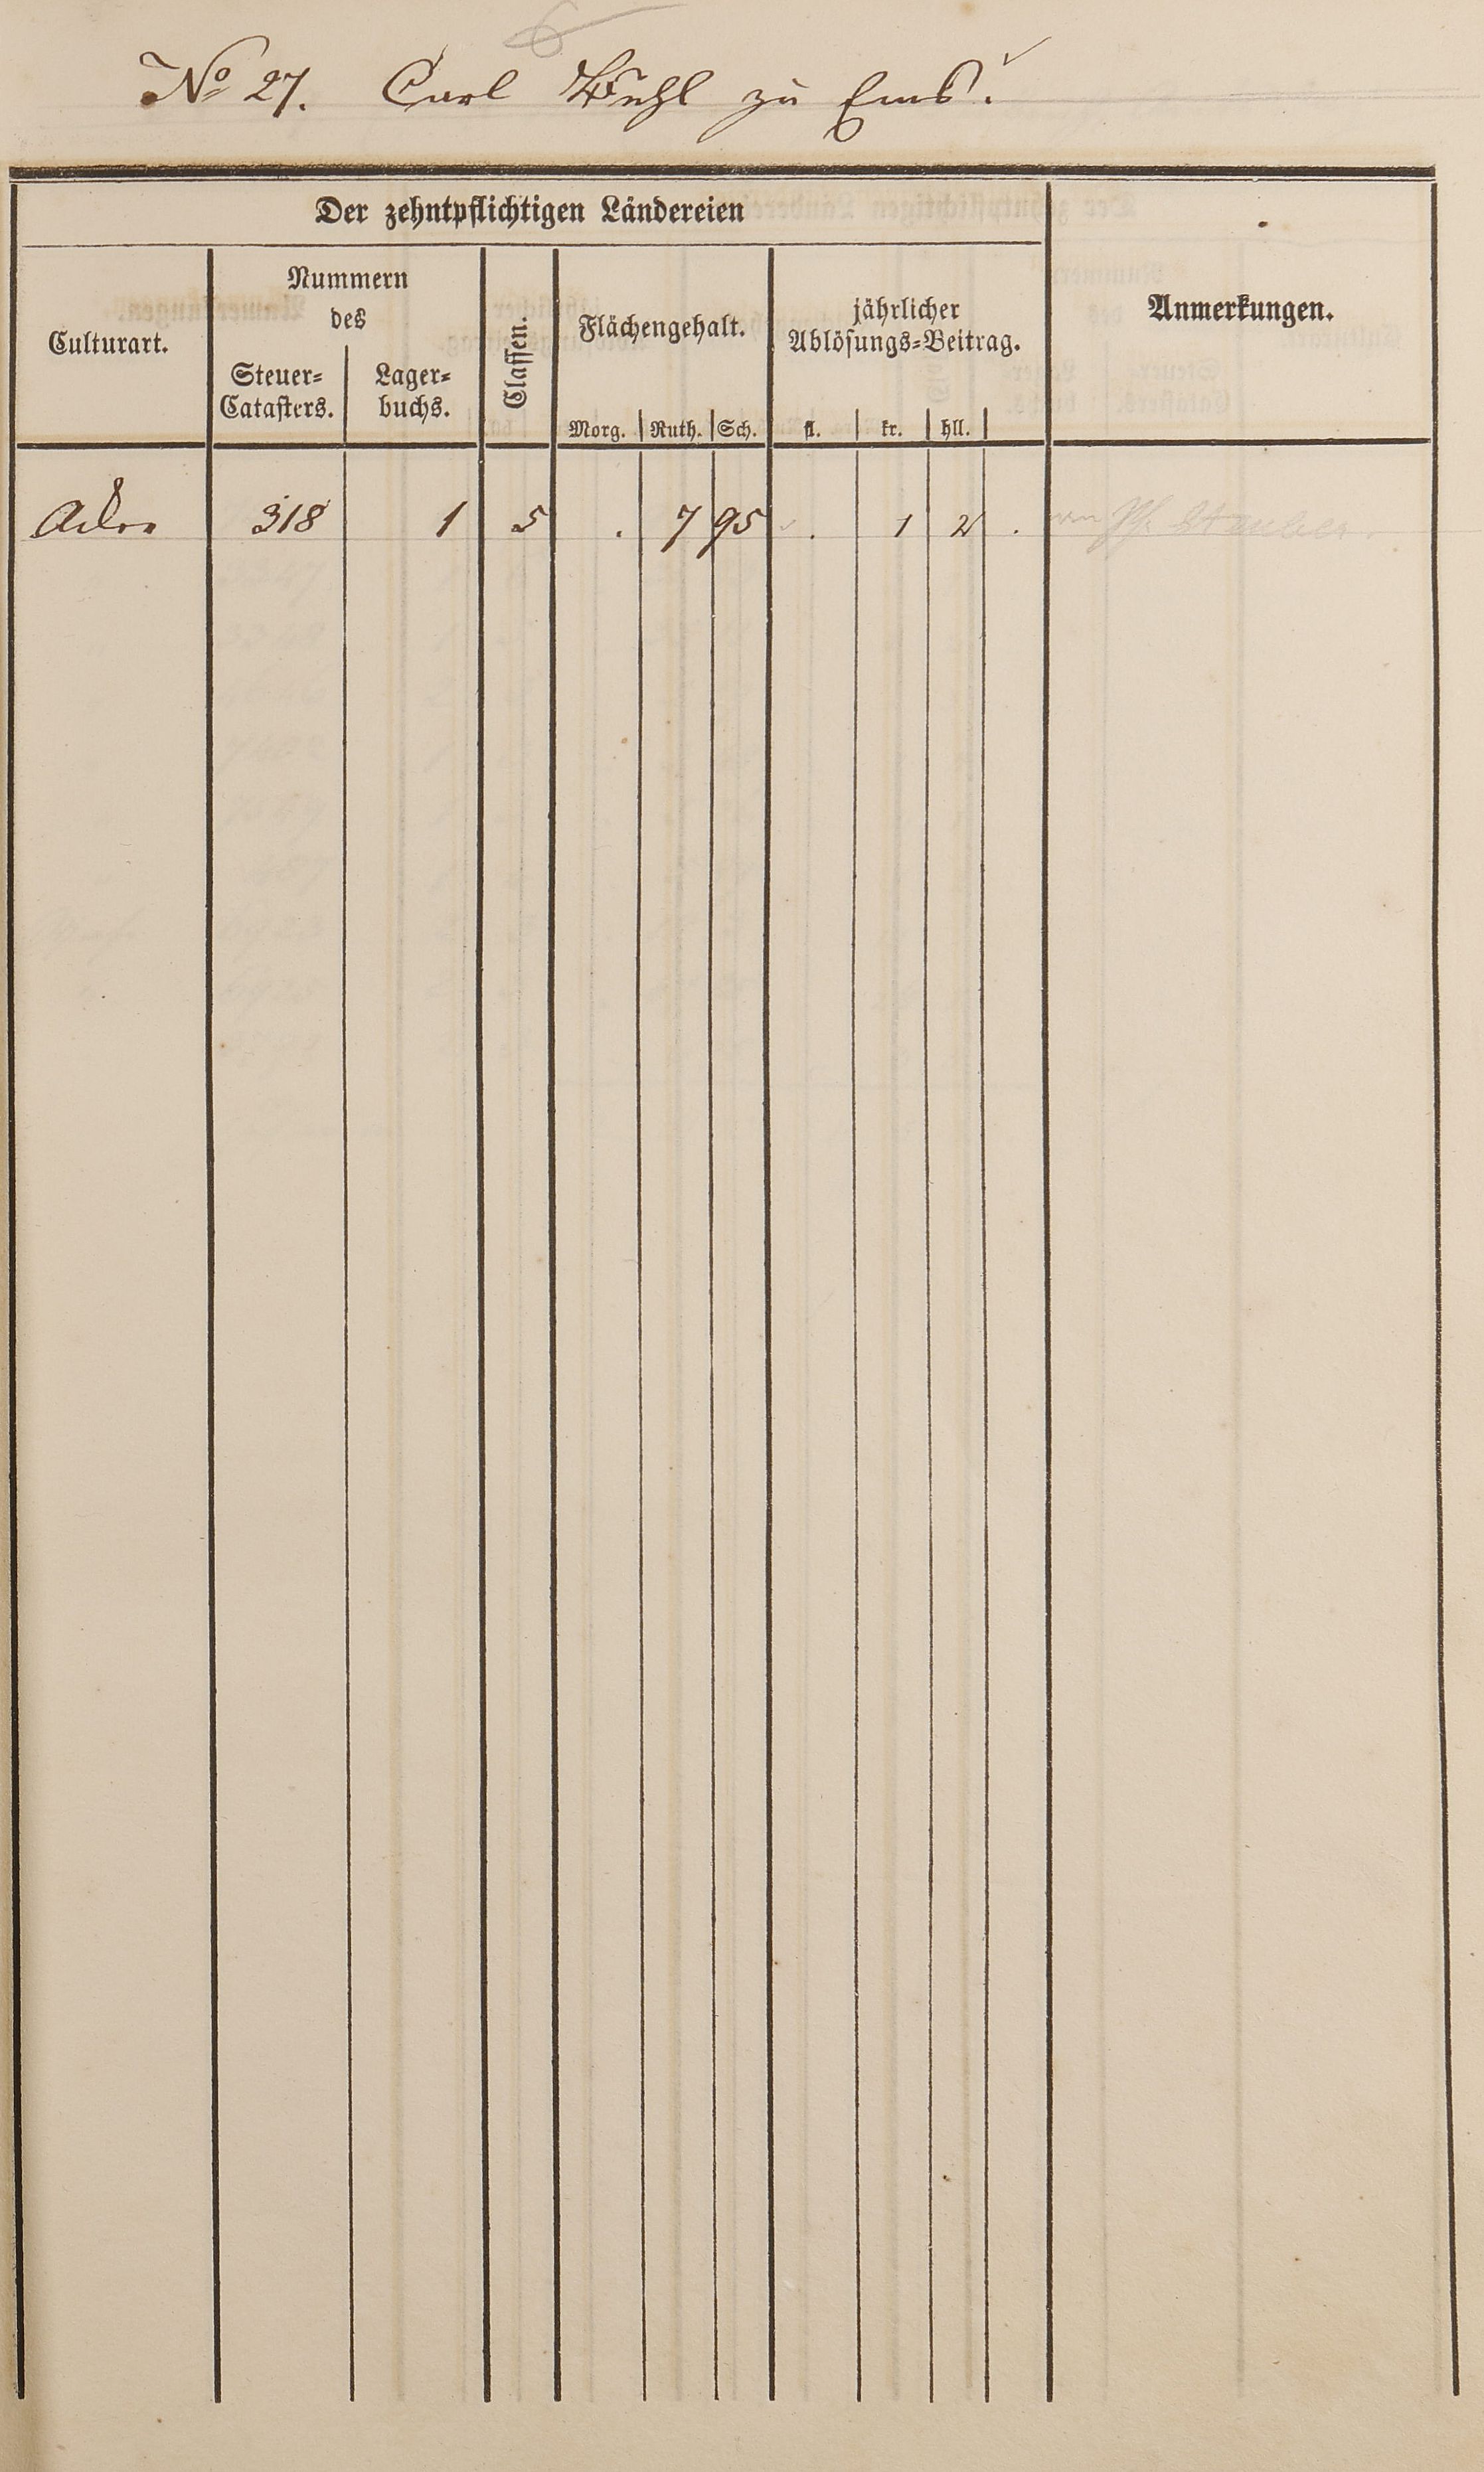 6
No 27. Carl Buhl zu Ems.
Der zehntpflichtigen Ländereien
Culturart.
Nummern
des
Steuer=
Catasters.
Lager=
buchs.
Classen.
Flächengehalt.
Morg. Ruth. Sch.
jährlicher
Ablösungs=Beitrag.
fl. kr. hll.
Anmerkungen.
Acker 318 1 5 . 7 95 . 1 2 .